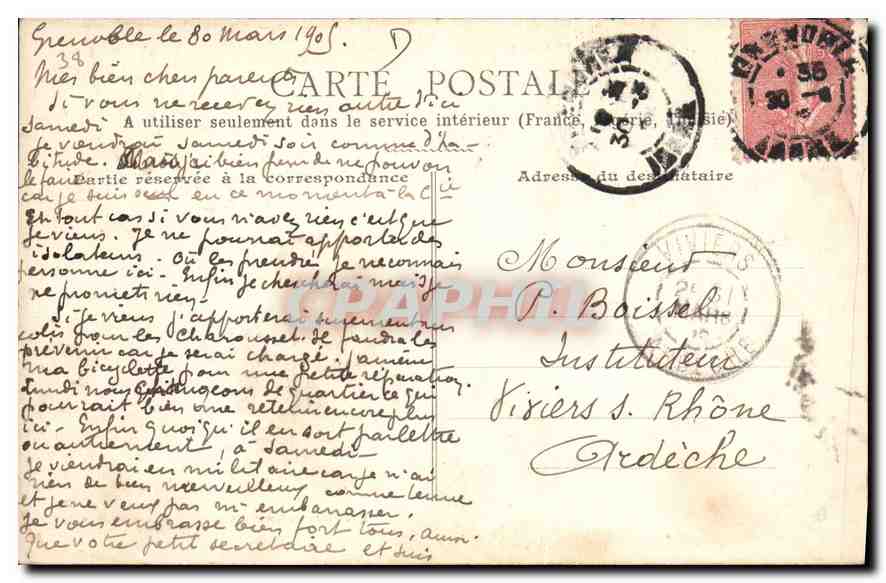 Grenoble le 30 Mars 1905.
38
D
Mes bien chers parents
CARTE POSTALE
Si vous ne recevez rien autre d'ici
A utiliser seulement dans le service intérieur (France, Algérie, Tunisie)
samedi
je viendrai samedi soir comme d'ha
bitude. Mais j'ai bien peur de ne pouvoir
le faire
Partie réservée à la correspondance
Adresse du destinataire
car je suis seul en ce moment à la Cie
En tout cas si vous n'avez rien c'est que
je viens. Je ne pourrai apporter des
isolateurs. Où les prendre, je ne connais
personne ici. Enfin je chercherai mais je
ne promets rien.
Si je viens j'apporterai sûrement un
colis pour les Charousset. Je faudra les
prévenir car je serai chargé. J'amène
ma bicyclette pour une petite réparation.
Lundi nous changeons de quartier ce qui
pourrait bien me retenir encore plus
ici. Enfin quoiqu'il en soit par lettre
ou autrement, à samedi
Je viendrai en militaire car je n'ai
rien de bien merveilleux comme tenue
et je ne veux pas m'embarrasser.
Je vous embrasse bien fort tous, ainsi
que votre petit secrétaire et suis
Monsieur
P. Boissel
Instituteur
Viviers s. Rhône
Ardèche
VIVIERS
ARDECHE
GRENOBLE
ISERE
CPAPHIL